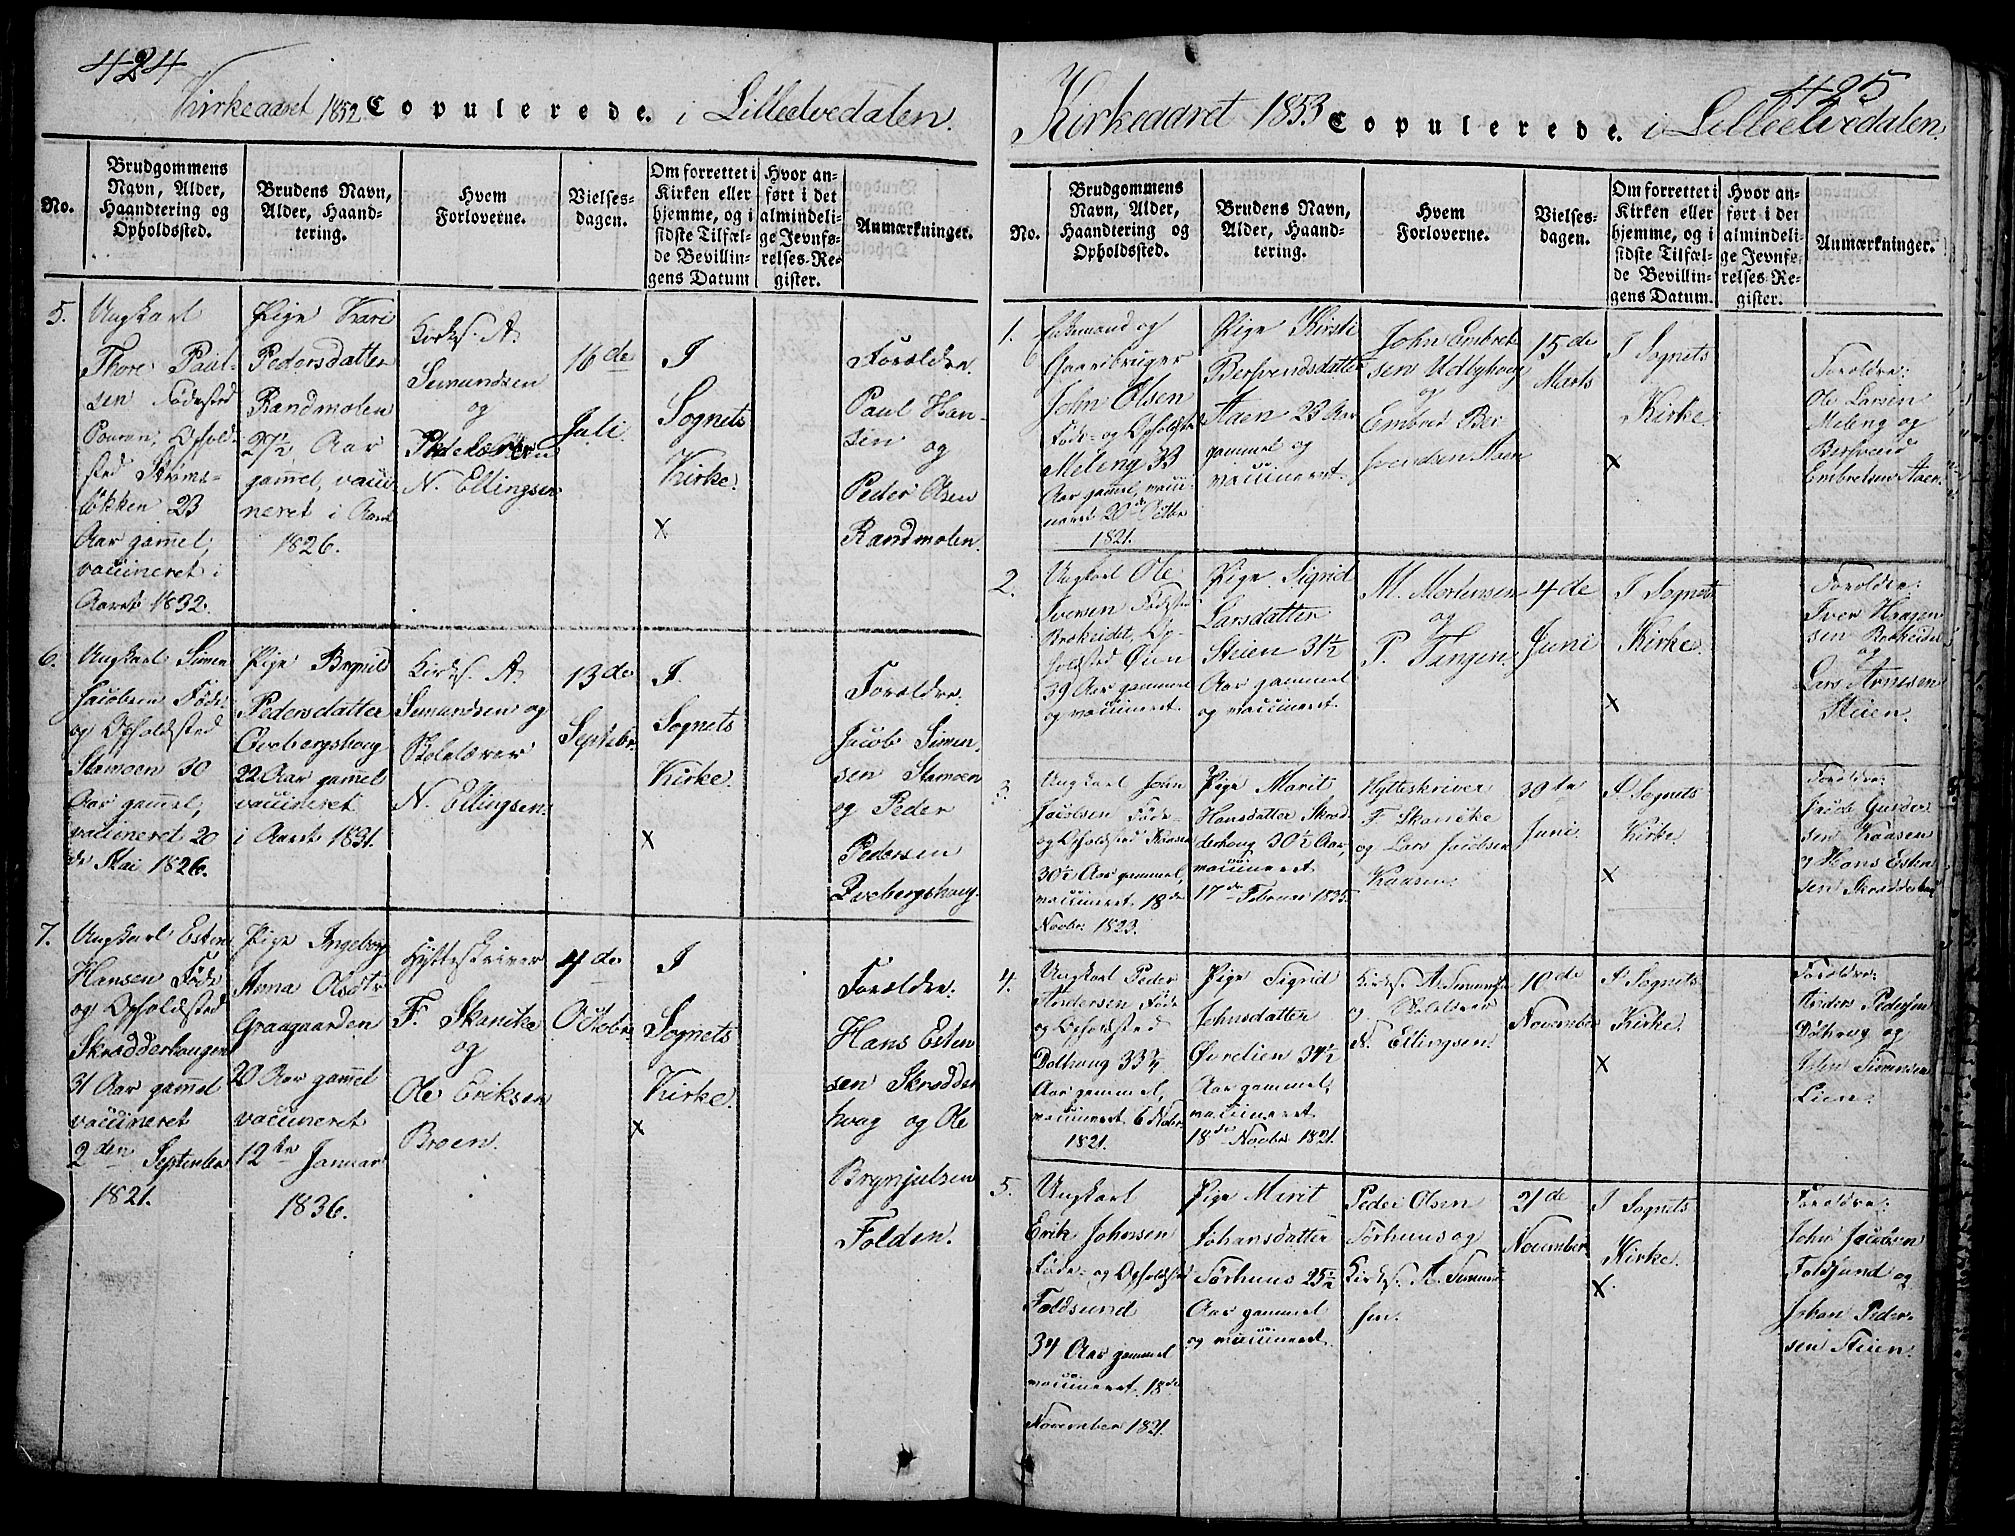 424
Kirkeaaret 1852 Copulerede. i Lilleelvedalen.
No.
Brudgommens
Navn, Alder,
Haandtering og
Opholdssted.
Brudens Navn,
Alder, Haand-
tering.
Hvem
Forloverne.
Vielses-
dagen.
Om forrettet i
Kirken eller
hjemme, og i
sidste Tilfæl-
de Bevillin-
gens Datum
Hvor an-
ført i det
almindeli-
ge Jevnfø-
relses-Re-
gister.
Anmærkninger.
5.
Ungkarl
Thore Paul-
sen Fødested
Ophold-
sted Strøms-
løkken 23
Aar gammel,
vaccineret i
Aaret 1832.
Pige Kari
Pedersdatter
Randmolen
27½ Aar
gammel, vacci
neret i Aaret
1826.
Kirks. A.
Semundsen
og
Skolelærer
N. Ellingsen
16de
Juli.
I
Sognets
Kirke.
x
Forældre.
Paul Han-
sen
og
Peder Olsen
Randmolen.
6.
Ungkarl Simen
Jacobsen Føde
og Opholdsted
Stamoen 30
Aar gammel,
vaccineret 20
de Mai 1826.
Pige Brynil
Pedersdatter
Qvebergshoug
22 Aar gamel
vaccineret
i Aaret 1831.
Kirks. A.
Semundsen og
Skolelærer
N. Ellingsen.
13de
Septebr.
I.
Sognets
Kirke.
x
Forældre.
Jacob Simen
sen Stamoen
og Peder
Pedersen
Qvebergshoug.
7.
Ungkarl Esten
Hansen Føde
og Opholdsted
Skrædderhaugen
31 Aar gammel
vaccineret
2den September
1821.
Pige Ingeborg
Anna Olsdtr
Graagaarden
20 Aar gammel
vaccineret
12te Januar
1836.
Hytteskriver
F. Skanike
og
Ole Eriksen
Broen.
4de
Octobr.
I
Sognets
Kirke.
x
Forældre.
Hans Esten
sen Skrædder
houg og Ole
Brynjulsen
Folden.
425
Kirkeaaret 1853 Copulerede. i Lilleelvedalen.
No.
Brudgommens
Navn, Alder,
Haandtering og
Opholdssted.
Brudens Navn,
Alder, Haand-
tering.
Hvem
Forloverne.
Vielses-
dagen.
Om forrettet i
Kirken eller
hjemme, og i
sidste Tilfæl-
de Bevillin-
gens Datum.
Hvor an-
ført i det
almindeli-
ge Jevnfø-
relses-Re-
gister.
Anmærkninger.
1.
Enkemand og
Gaardbruger
John Olsen
Føde- og Opholdste
Meleng 33
Aar gammel, vacci-
neret 20de Octbr
1821.
Pige Kirsti
Bersvendsdatter
Aaen 23 Aar
gammel og
vaccineret.
John Embret
sen Udbyhoug
og
Embret Ber
svendsen Aaen
15de
Marts
I Sognets
Kirke
x
Forældre:
Ole Larsen
Meleng og
Bersvend
Embretsen Aaen.
2.
Ungkarl Ole
Iversen Fødested
Brokeidet, Op-
holdsted Øien
39 Aar gammel
og vaccineret.
Pige Sigrid
Larsdatter
Steien 31½
Aar gammel
og vaccineret.
M. Mortensen
og
P. Tangen.
4de
Juni
I Sognets
Kirke.
x
Forældre:
Iver Haagen
sen Brokeidet
og
Lars Arnesen
Steien.
3.
Ungkarl John
Jacobsen Føde-
og Opholdsted Kaasen
30½ Aar gammel,
vaccineret 18de
Novbr. 1823.
Pige Marit
Hansdatter Skræd
derhoug 30½ Aar,
vaccineret
17de Februar 1835.
Hytteskriver
F. Skanike
og Lars Jacobsen
Kaasen.
30te
Juni.
I Sognets
Kirke.
x
Forældre:
Gunder
sen Kaasen
og Hans Esten
sen Skrædderhoug
4.
Ungkarl Peder
Andersen Føde
og Opholdsted
Dolhoug 33½
Aar gammel,
vaccineret 6 Octobr
1821.
Pige Sigrid
Johnsdatter
Øvrelien 34½
Aar gammel,
vaccineret
18de Novbr 1821.
Kirks. A. Semunds
og Skolelærer
N. Ellingsen.
10de
November
I Sognets
Kirke.
x
Forældre:
Anders Pedersen
Dolhoug og
John Simensen
Lien.
5.
Ungkarl
Erik Johnsen
Føde- og Opholdsted
Foldsund
34 Aar gammel
vaccineret 18de
November 1821.
Pige Merit
Johansdatter
Tørhuus 25½
Aar gammel
og vaccineret.
Peder Olsen
Tørhuus og
Kirks. A. Semund
sen.
21de
November
I Sognets
Kirke.
x
Forældre:
John Jacobsen
Foldsund og
Johan Peder-
sen Steien.